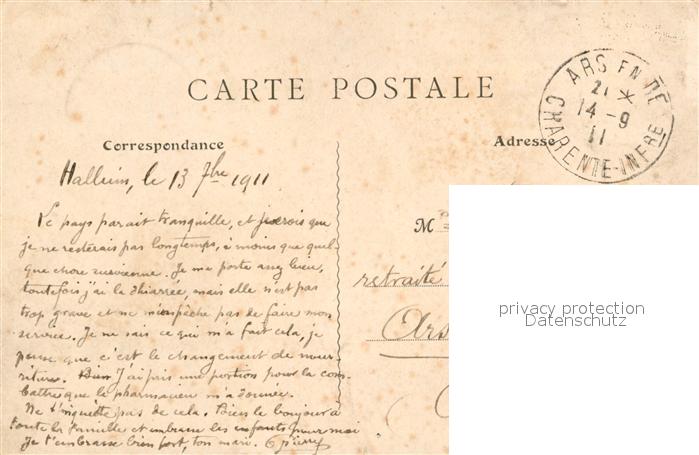 CARTE POSTALE
ARS EN RÉ
21 *
14-9
11
CHARENTE-INFRE
Correspondance
Adresse
Halluin, le 13 7bre 1911
Le pays parait tranquille, et je crois que
je ne resterais pas longtemps, à moins que quel-
que chose survienne. Je me porte assez bien,
toutefois j'ai la diharrée, mais elle n'est pas
trop grave et ne m'empêche pas de faire mon
service. Je ne sais ce qui m'a fait cela, je
pense que c'est le changement de nour-
riture. Bien J'ai pris une portion pour la com-
battre que le pharmacien m'a donnée.
Ne t'inquiètte pas de cela. Bien le bonjour à
toute la famille et embrasse les enfants pour moi
Je t'embrasse bien fort, ton mari.
M
retraité
Ars
privacy protection
Datenschutz